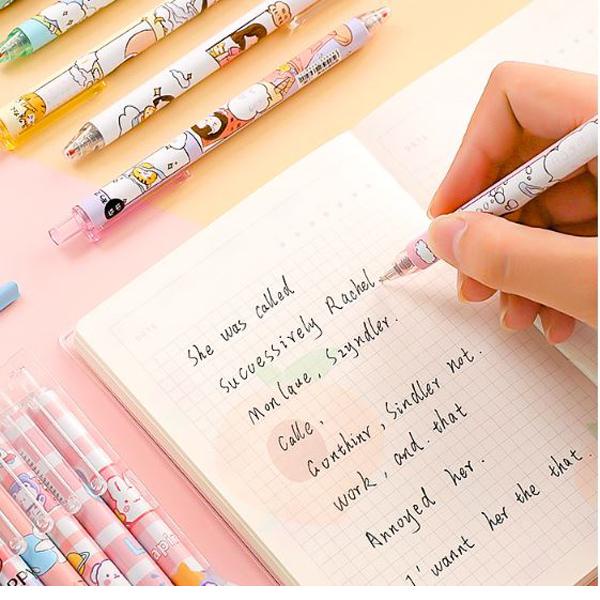 She was called
Successively Rachel
Monlaue, Szyndler.
Calle,
Gonthinr, Sindler not.
work, and. that
Annoyed her.
I'wannt her the that.